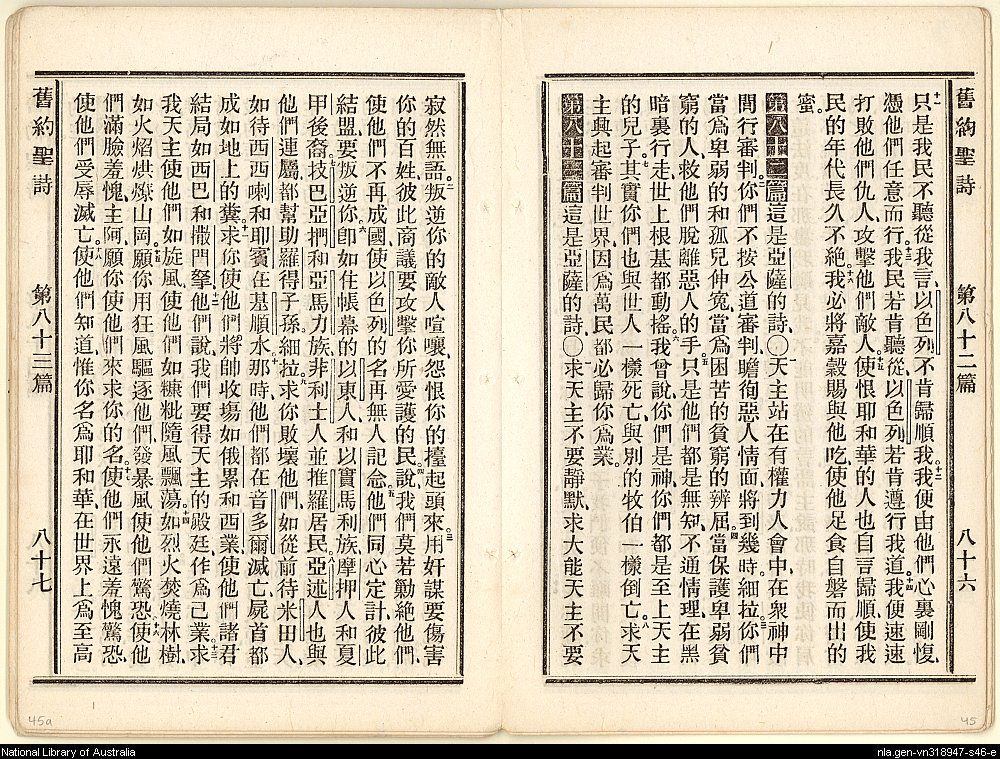 舊約聖詩 第八十二篇 八十六
十一只是我民不聽從我言、以色列不肯歸順我、十二我便由他們心裏剛愎、
憑他們任意而行、十三我民若肯聽從、以色列若肯遵行我道、十四我便速速
打敗他們仇人、攻擊他們敵人、十五使恨耶和華的人、也自言歸順、使我
民的年代長久不絕、十六我必將嘉穀賜與他吃、使他足食自磐而出的
蜜。
第八十二篇 這是亞薩的詩、〇一天主站在有權力人會中、在衆神中
間行審判、二你們不按公道審判、瞻徇惡人情面、將到幾時、細拉三你們
當爲卑弱的和孤兒伸冤、當爲困苦的貧窮的辨屈、四當保護卑弱貧
窮的人、救他們脫離惡人的手、五只是他們都是無知、不通情理、在黑
暗裏行走、世上根基都動搖、六我曾說你們是神、你們都是至上天主
的兒子、七其實你們也與世人一樣死亡、與別的牧伯一樣倒亡、八求天
主興起審判世界、因爲萬民都必歸你爲業。
第八十三篇 這是亞薩的詩、〇一求天主不要靜默、求大能天主不要
寂然無語、二叛逆你的敵人喧嚷、怨恨你的擡起頭來、三用奸謀要傷害
你的百姓、彼此商議要攻擊你所愛護的民、四說我們莫若勦絕他們、
使他們不再成國、使以色列的名再無人記念、五他們同心定計、彼此
結盟、要叛逆你、六卽如住帳幕的以東人、和以實馬利族、摩押人和夏
甲後裔、七技巴亞捫和亞馬力族、非利士人並推羅居民、八亞述人也與
他們連屬、都幫助羅得子孫、細拉九求你敗壞他們、如從前待米田人、
如待西西喇和耶賓在基順水那時、十他們都在音多爾滅亡、屍首都
成如地上的糞、十一求你使他們將帥收塲如俄累和西業、使他們諸君
結局如西巴和撒門拏、十二他們說我們要得天主的殿廷作爲己業、十三求
我天主使他們如旋風、使他們如糠粃隨風飄蕩、十四如烈火焚燒林樹、
如火焰烘燎山岡、十五願你用狂風驅逐他們、發暴風使他們驚恐、十六使他
們滿臉羞愧、主阿、願你使他們來求你的名、十七使他們永遠羞愧驚恐、
使他們受辱滅亡、十八使他們知道惟你名爲耶和華、在世界上爲至高
舊約聖詩 第八十三篇 八十七
45a
45
National Library of Australia
nla.gen-vn318947-s46-e